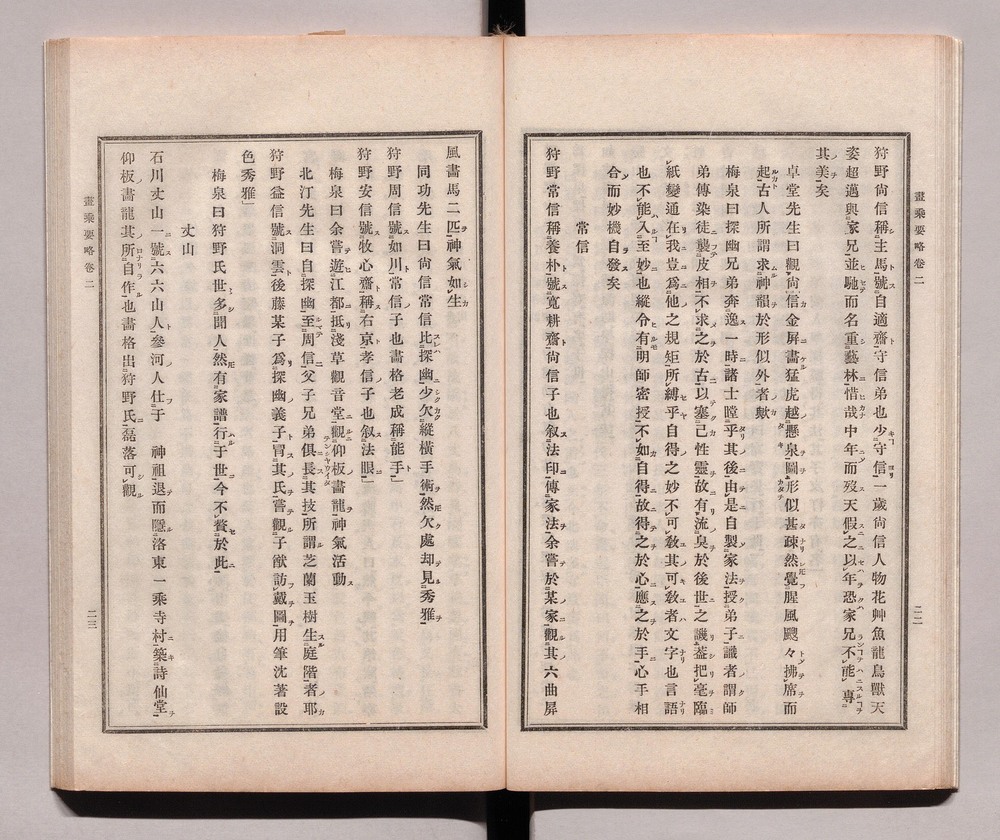 畫乘要略卷二
二二
狩野尙信稱主馬號自適齋守信弟也少守信一歲尙信人物花艸魚龍鳥獸天
姿超邁與家兄並馳而名重藝林惜哉中年而歿天假之以年恐家兄不能專
其美矣
卓堂先生曰觀尙信金屛畫猛虎越懸泉圖形似甚疎然覺腥風颼々拂席而
起古人所謂求神韻於形似外者歟
梅泉曰探幽兄弟奔逸一時諸士瞠乎其後由是自製家法授弟子識者謂師
弟傳染徒襲皮相不求之於古以塞己性靈故有流臭於後世之譏蓋把毫臨
紙變通在我豈爲他之規矩所縛乎自得之妙不可敎其可敎者文字也言語
也不能入至妙也縱令有明師密授不如自得故得之於心應之於手心手相
合而妙機自發矣
常信
狩野常信稱養朴號寬耕齋尙信子也叙法印傳家法余嘗於某家觀其六曲屛
風畫馬二匹神氣如生
同功先生曰尙信常信比探幽少欠縱橫手術然欠處却見秀雅
狩野周信號如川常信子也畫格老成稱能手
狩野安信號牧心齋稱右京孝信子也叙法眼
梅泉曰余嘗遊江都抵淺草觀音堂觀仰板畫龍神氣活動
北汀先生曰自探幽至周信父子兄弟俱長其技所謂芝蘭玉樹生庭階者耶
狩野益信號洞雲後藤某子爲探幽義子冒其氏嘗觀子猷訪戴圖用筆沈著設
色秀雅
梅泉曰狩野氏世多聞人然有家譜行于世今不贅於此
丈山
石川丈山一號六六山人參河人仕于　神祖退而隱洛東一乘寺村築詩仙堂
仰板畫龍其所自作也畫格出狩野氏磊落可觀
畫乘要略卷二
二三